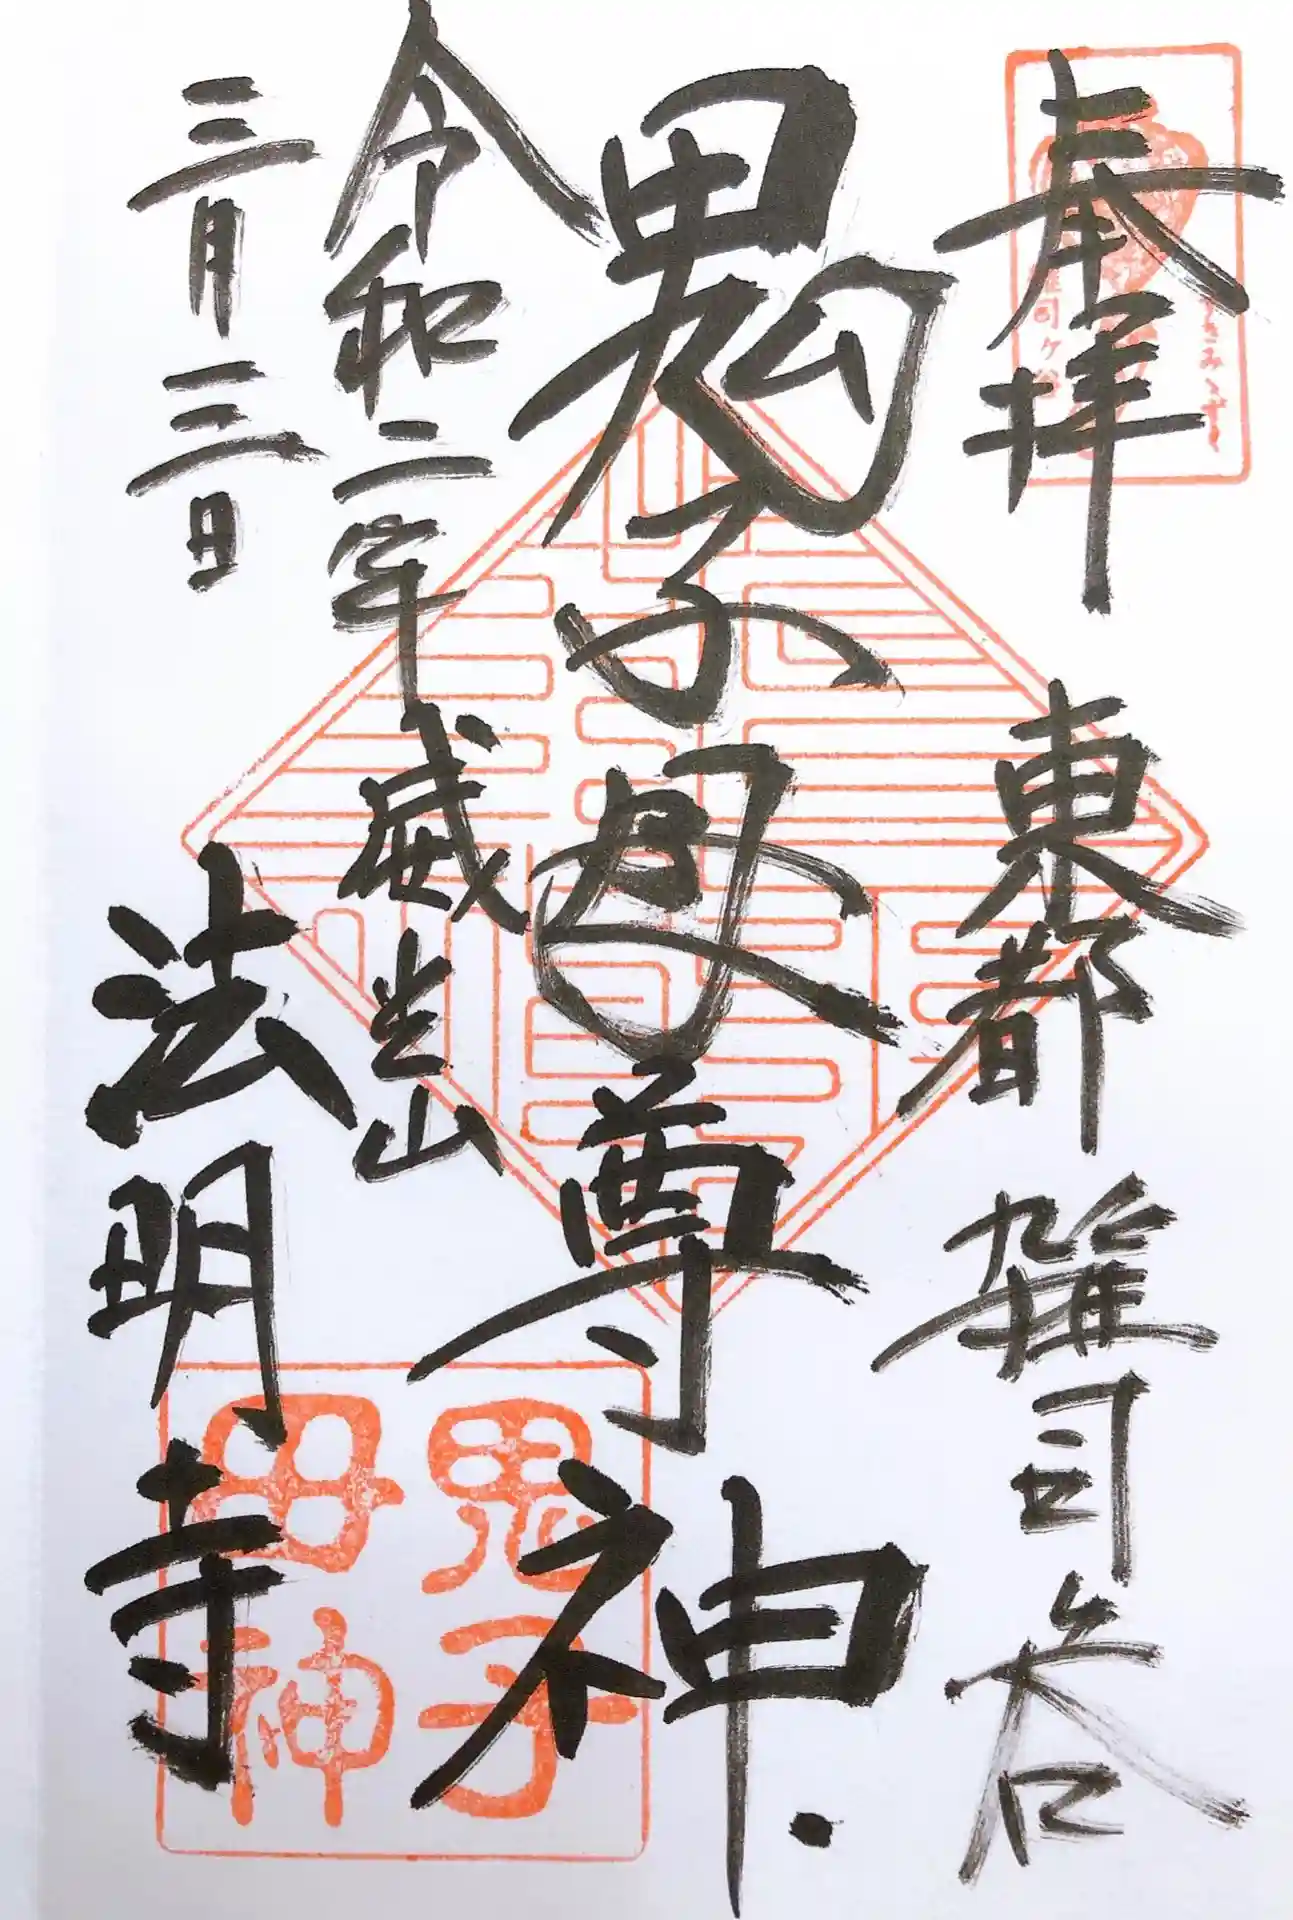 奉拝
東都 雑司ヶ谷
鬼子母尊神
令和二年
威光山
三月三日
法明寺
鬼子
母神
雑司ヶ谷
すすきみみずく